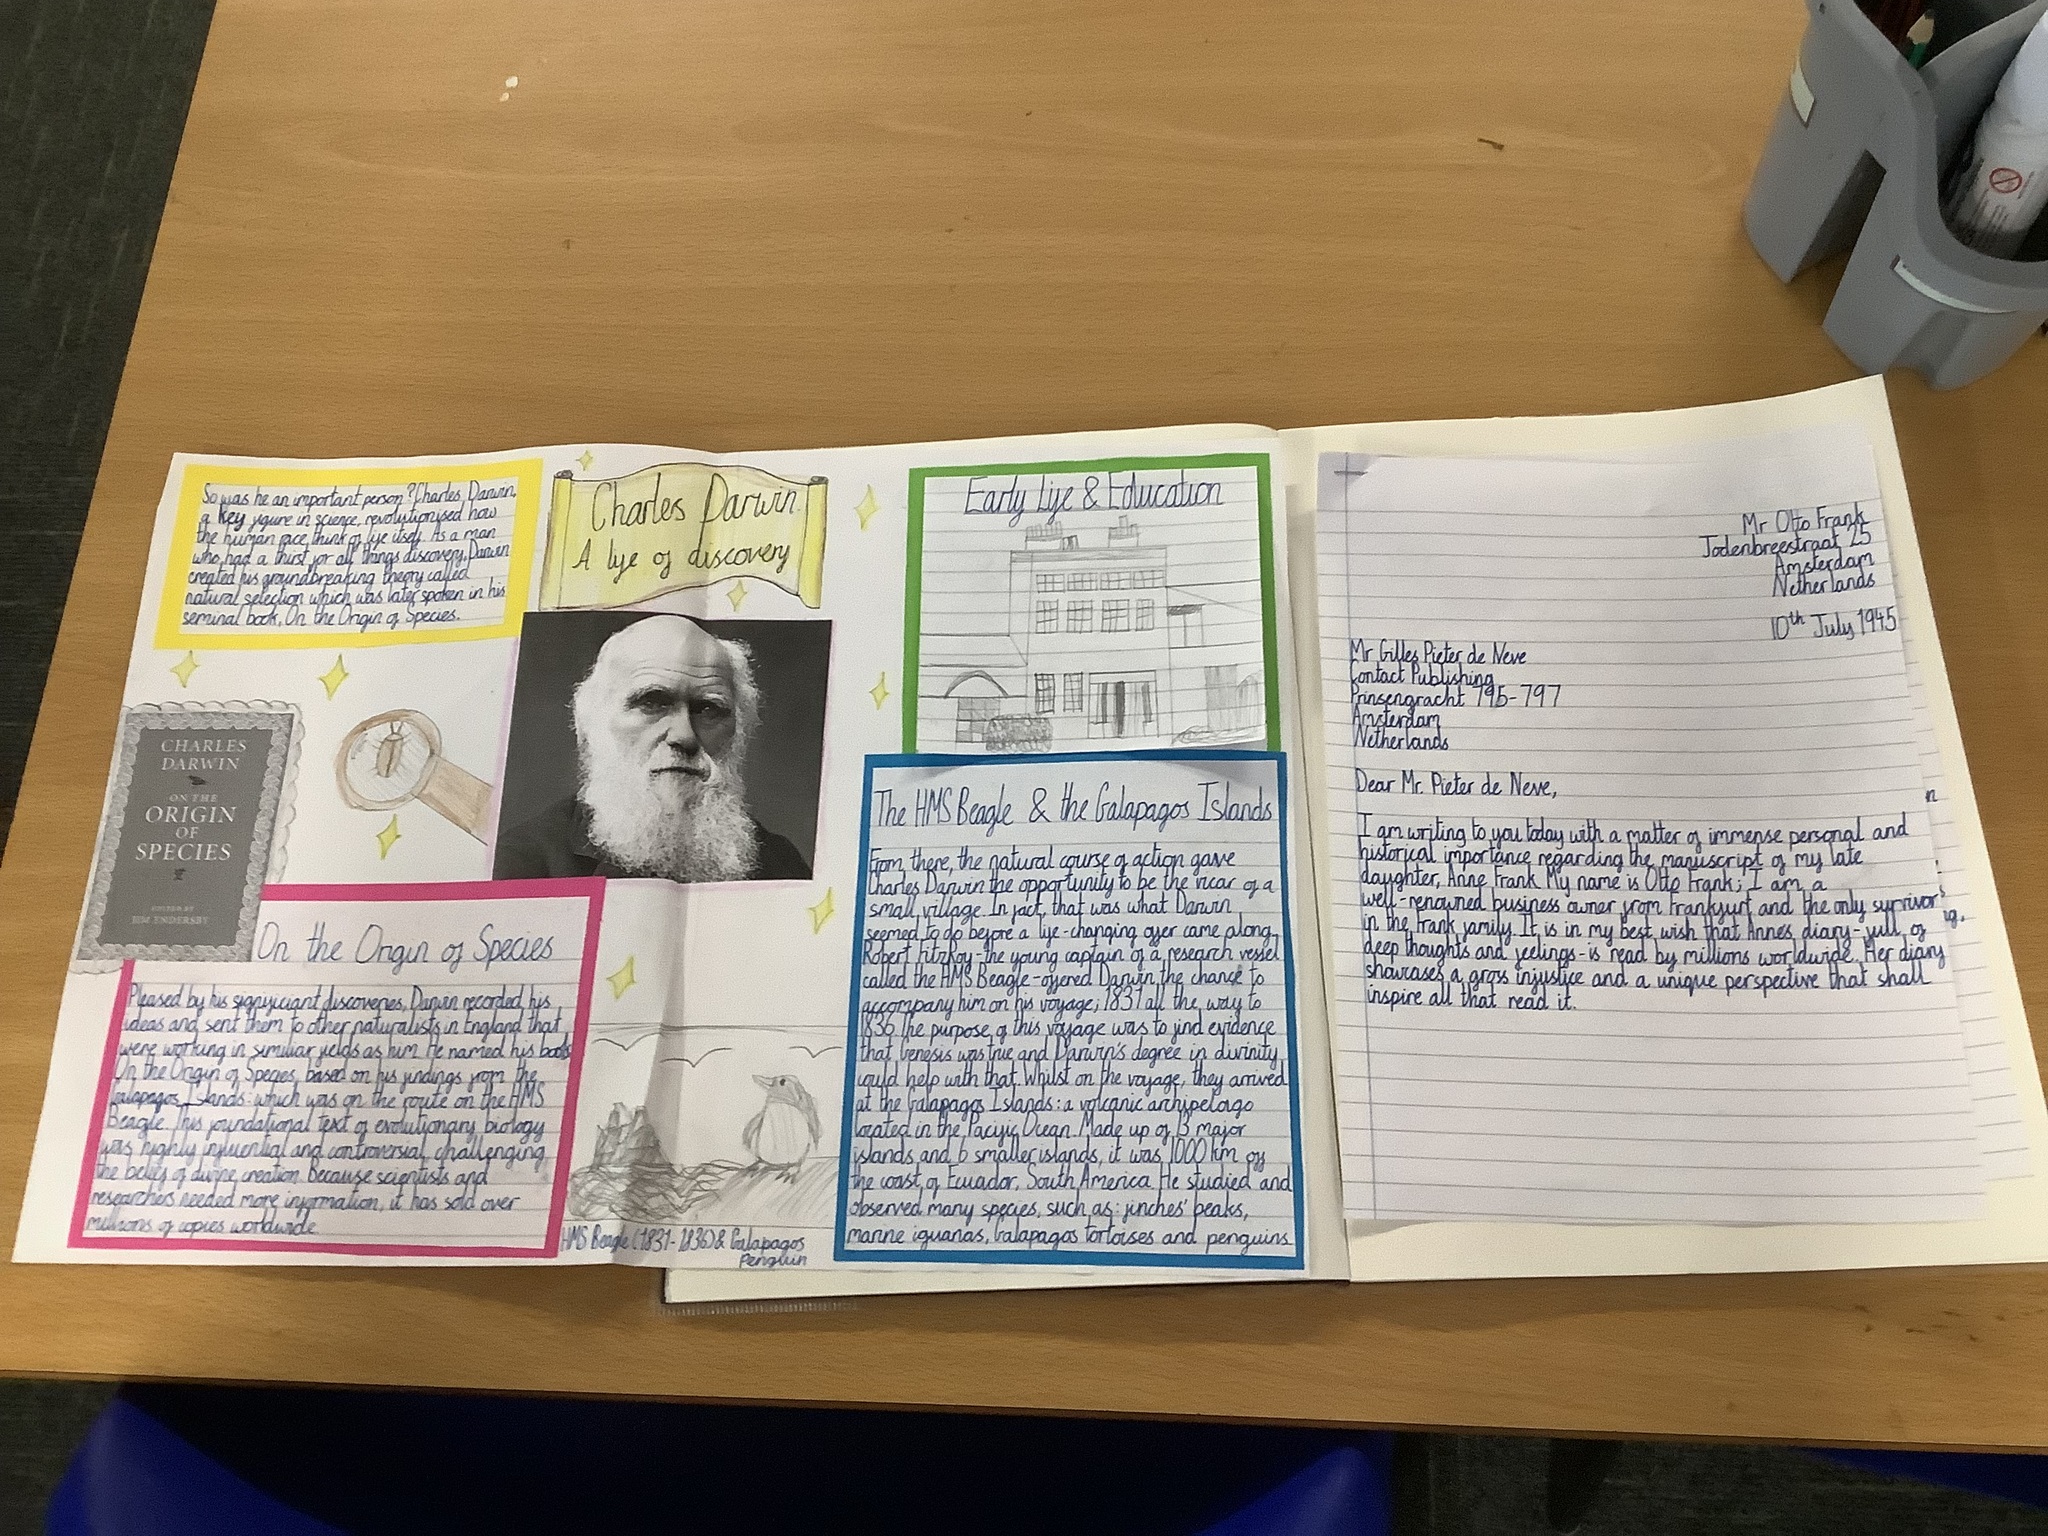 So was he an important person? Charles Darwin,
a key figure in science, revolutionised how
the human race think of life itself. As a man
who had a thirst for all things discovery, Darwin
created his groundbreaking theory called
natural selection which was later spoken in his
seminal book, On the Origin of Species.
Charles Darwin
A life of discovery
CHARLES
DARWIN
ON THE
ORIGIN
OF
SPECIES
EDITED BY
JIM ENDERSBY
On the Origin of Species
Pleased by his significiant discoveries, Darwin recorded his
ideas and sent them to other naturalists in England that
were working in similiar fields as him. He named his book
On the Origin of Species, based on his findings from the
Galapagos Islands: which was on the route on the HMS
Beagle. This foundational text of evolutionary biology
was highly influential and controversial, challenging
the belief of divine creation. Because scientists and
researchers needed more information, it has sold over
millions of copies worldwide.
HMS Beagle (1831-1836) & Galapagos
Penguin
Early Life & Education
The HMS Beagle & the Galapagos Islands
From, there, the natural course of action gave
Charles Darwin the opportunity to be the vicar of a
small village. In fact, that was what Darwin
seemed to do before a life-changing offer came along.
Robert Fitzroy-the young captain of a research vessel
called the HMS Beagle-offered Darwin the chance to
accompany him on his voyage; 1831 all the way to
1836. The purpose of this voyage was to find evidence
that Genesis was true and Darwin's degree in divinity
could help with that. Whilst on the voyage, they arrived
at the Galapagos Islands: a volcanic archipelago
located in the Pacific Ocean. Made up of 13 major
islands and 6 smaller islands, it was 1000 km off
the coast, of Ecuador, South America. He studied and
observed many species, such as: finches' beaks,
marine iguanas, Galapagos tortoises and penguins.
Mr Otto Frank
Jodenbreestraat 25
Amsterdam
Netherlands
10th July 1945
Mr Gilles Pieter de Neve
Contact Publishing
Prinsengracht 795-797
Amsterdam
Netherlands
Dear Mr. Pieter de Neve,
I am writing to you today with a matter of immense personal and
historical importance regarding the manuscript of my late
daughter, Anne Frank. My name is Otto Frank; I am a
well-renowned business owner from Frankfurt and the only survivor
in the Frank family. It is in my best wish that Anne's diary-full of
deep thoughts and feelings-is read by millions worldwide. Her diary
showcases a gross injustice and a unique perspective that shall
inspire all that read it.